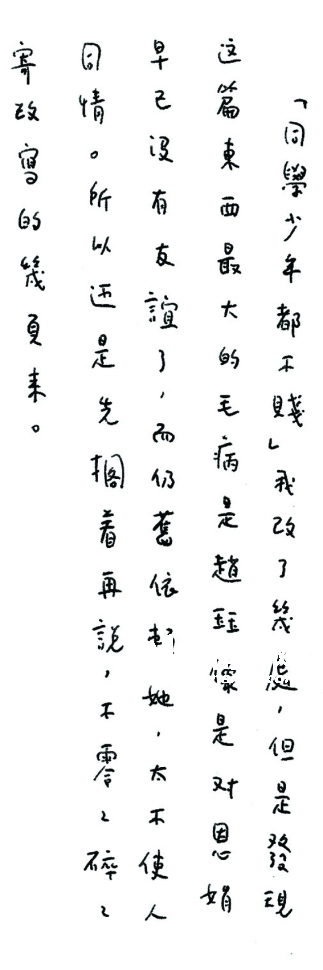 「同學少年都不賤」我改了幾處，但是發現
这篇東西最大的毛病是趙珏像是对恩娟
早已没有友誼了，而仍舊依她，太不使人
同情。所以还是先擱着再說，不零〻碎〻
寄改寫的幾頁来。